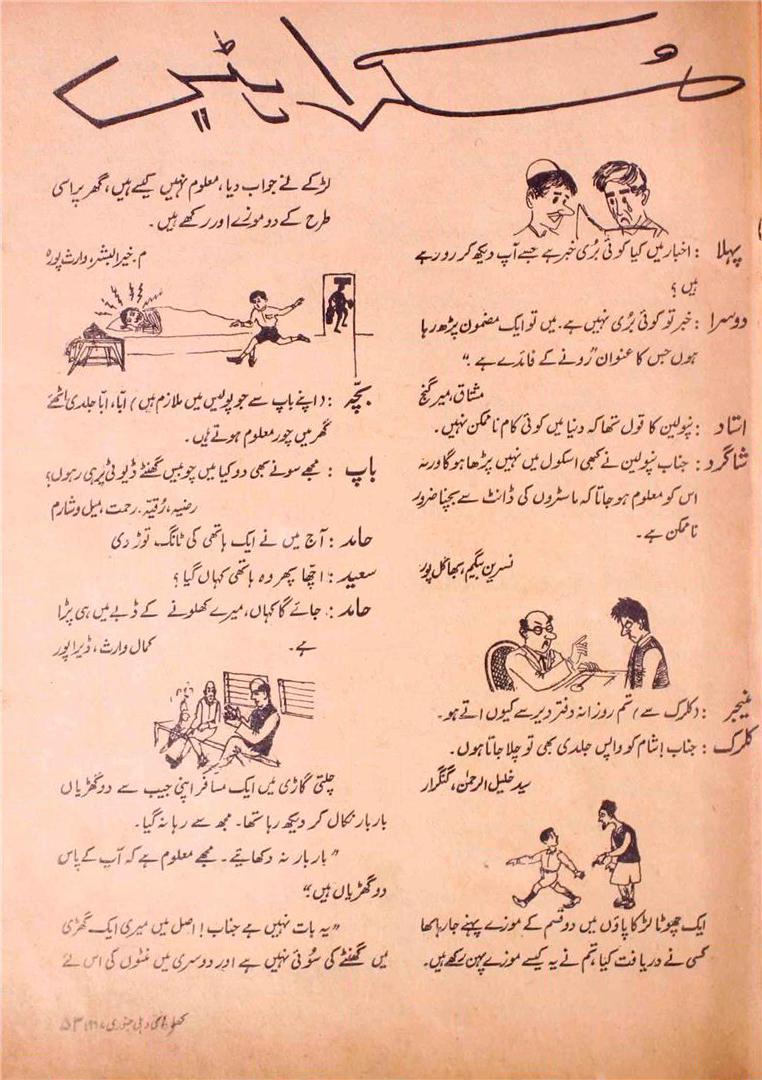 مُسکراہٹیں
پہلا : اخبار میں کیا کوئی بُری خبر ہے جسے آپ دیکھ کر رو رہے
ہیں؟
دوسرا : خبر تو کوئی بُری نہیں ہے۔ میں تو ایک مضمون پڑھ رہا
ہوں جس کا عنوان "رُونے کے فائدے ہے۔"
مشتاق، میر گنج
استاد : نپولین کا قول تھا کہ دنیا میں کوئی کام نا ممکن نہیں۔
شاگرد : جناب نپولین نے کبھی اسکول میں نہیں پڑھا ہوگا ورنہ
اس کو معلوم ہو جاتا کہ ماسٹروں کی ڈانٹ سے بچنا ضرور
نا ممکن ہے۔
نسرین بیگم، بھاگل پور
منیجر : (کلرک سے) تم روزانہ دفتر دیر سے کیوں آتے ہو۔
کلرک : جناب! شام کو واپس جلدی بھی تو چلا جاتا ہوں۔
سید خلیل الرحمٰن، گنگرار
ایک چھوٹا لڑکا پاؤں میں دو قسم کے موزے پہنے جا رہا تھا
کسی نے دریافت کیا، تم نے یہ کیسے موزے پہن رکھے ہیں۔
لڑکے نے جواب دیا، معلوم نہیں کیسے ہیں، گھر پر اسی
طرح کے دو موزے اور رکھے ہیں۔
م۔ خیر البشر، وارث پورہ
بچّہ : (اپنے باپ سے جو پولیس میں ملازم ہیں) ابّا، ابّا جلدی اٹھئے
گھر میں چور معلوم ہوتے ہیں۔
باپ : مجھے سونے بھی دو کیا میں چوبیس گھنٹے ڈیوٹی پر ہی رہوں؟
رضیہ، رُقیّہ، رحمت، میل وشارم
حامد : آج میں نے ایک ہاتھی کی ٹانگ توڑ دی
سعید : اچّھا پھر وہ ہاتھی کہاں گیا؟
حامد : جائے گا کہاں، میرے کھلونے کے ڈبے میں ہی پڑا
ہے۔ کمال وارث، ڈیراپور
چلتی گاڑی میں ایک مسافر اپنی جیب سے دو گھڑیاں
بار بار نکال کر دیکھ رہا تھا۔ مجھ سے رہا نہ گیا۔
"بار بار نہ دکھایئے۔ مجھے معلوم ہے کہ آپ کے پاس
دو گھڑیاں ہیں"
"یہ بات نہیں ہے جناب! اصل میں میری ایک گھڑی
میں گھنٹے کی سُوئی نہیں ہے اور دوسری میں منٹوں کی اس لئے
دہلی جنوری